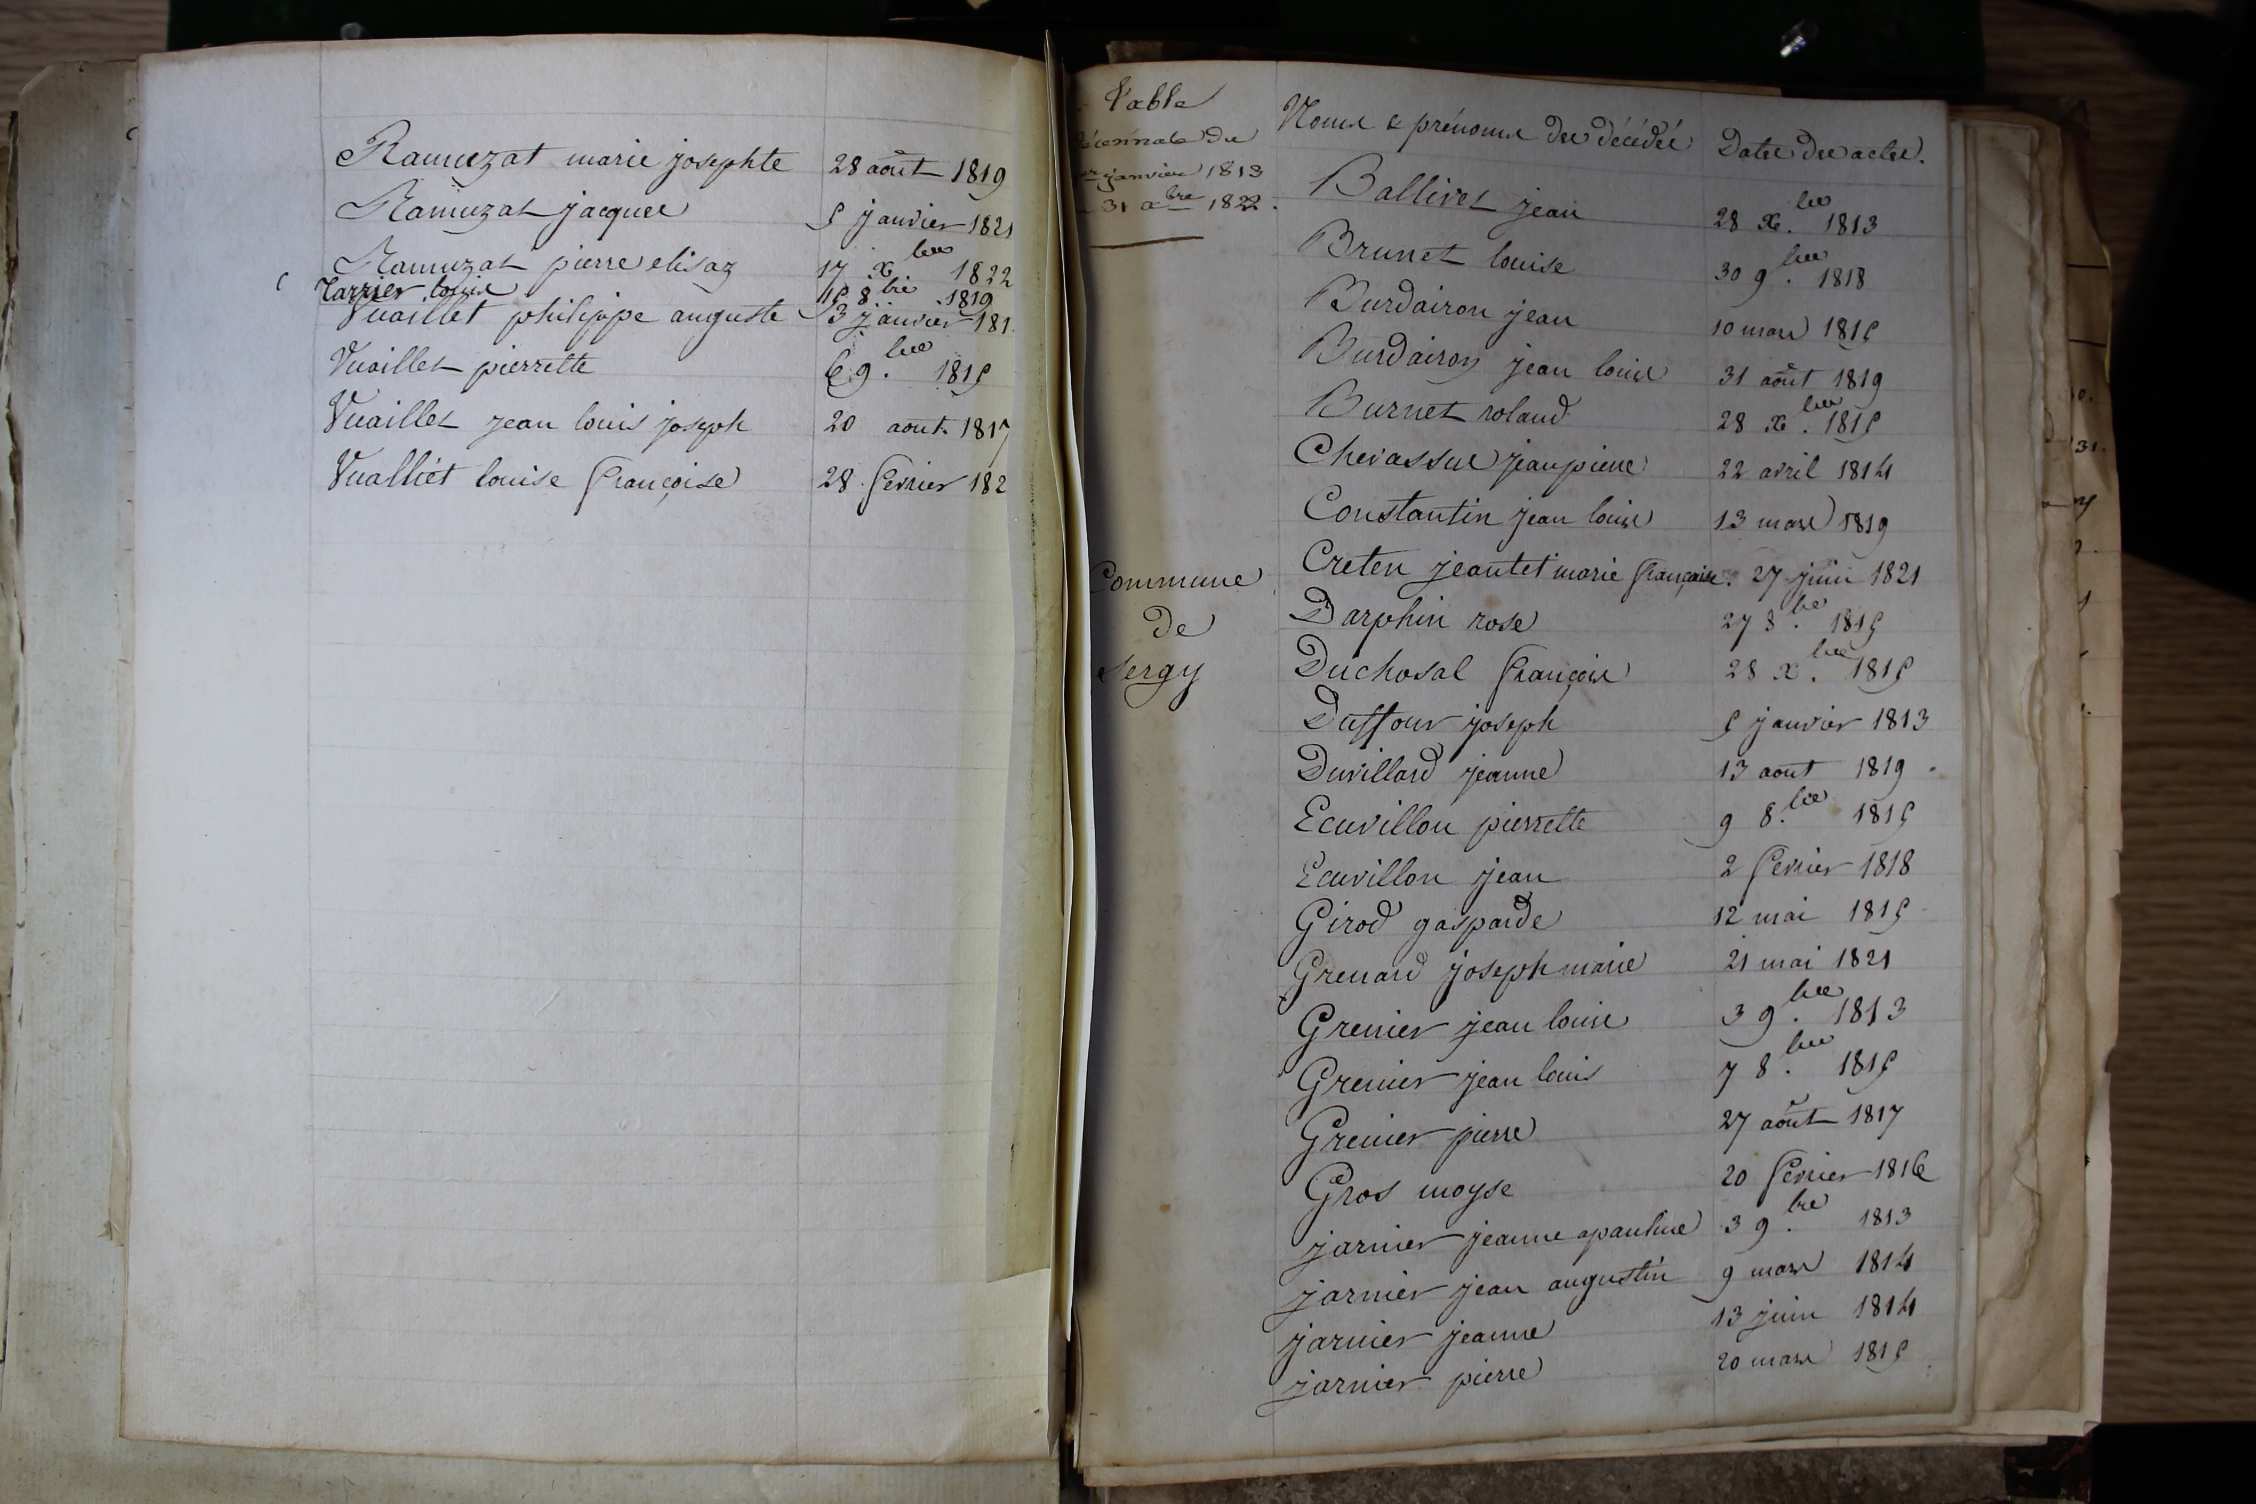 Ramuzat marie josephte 28 août 1819
Ramuzat jacques 5 janvier 1821
Ramuzat pierre elisaz 17 xbre 1822
Tarrier louis 15 8bre 1819
Vuaillet philippe auguste 3 janvier 181
Vuaillet pierrette 6 9.bre 1815
Vuaillet jean louis joseph 20 aout 1817
Vualliet louise françoise 28 fevrier 182
Table
Décennale du
1er janvier 1813
31 xbre 1822.
Commune
de
Sergy
Noms & prénoms des décédés Dates des actes.
Ballivet jean 28 x.bre 1813
Brunet louise 30 9.bre 1818
Burdairon jean 10 mars 1815
Burdairon jean louis 31 août 1819
Burnet roland 28 x.bre 1815
Chevassus jean pierre 22 avril 1814
Constantin jean louis 13 mars 1819
Creten jeantet marie françoise. 27 juin 1821
Darphin rose 27 8.bre 1815
Duchosal françois 28 x.bre 1815
Duffour joseph 5 janvier 1813
Duvillard jeanne 13 aout 1819
Ecuvillon pierrette 9 8.bre 1815
Ecuvillon jean 2 fevrier 1818
Girod gasparde 12 mai 1815
Grenard joseph marie 21 mai 1821
Grenier jean louis 3 9.bre 1813
Grenier jean louis 7 8.bre 1815
Grenier pierre 27 août 1817
Gros moyse 20 fevrier 1816
jarnier jeanne apauline 3 9.bre 1813
jarnier jean augustin 9 mars 1814
jarnier jeanne 13 juin 1814
jarnier pierre 20 mars 1815